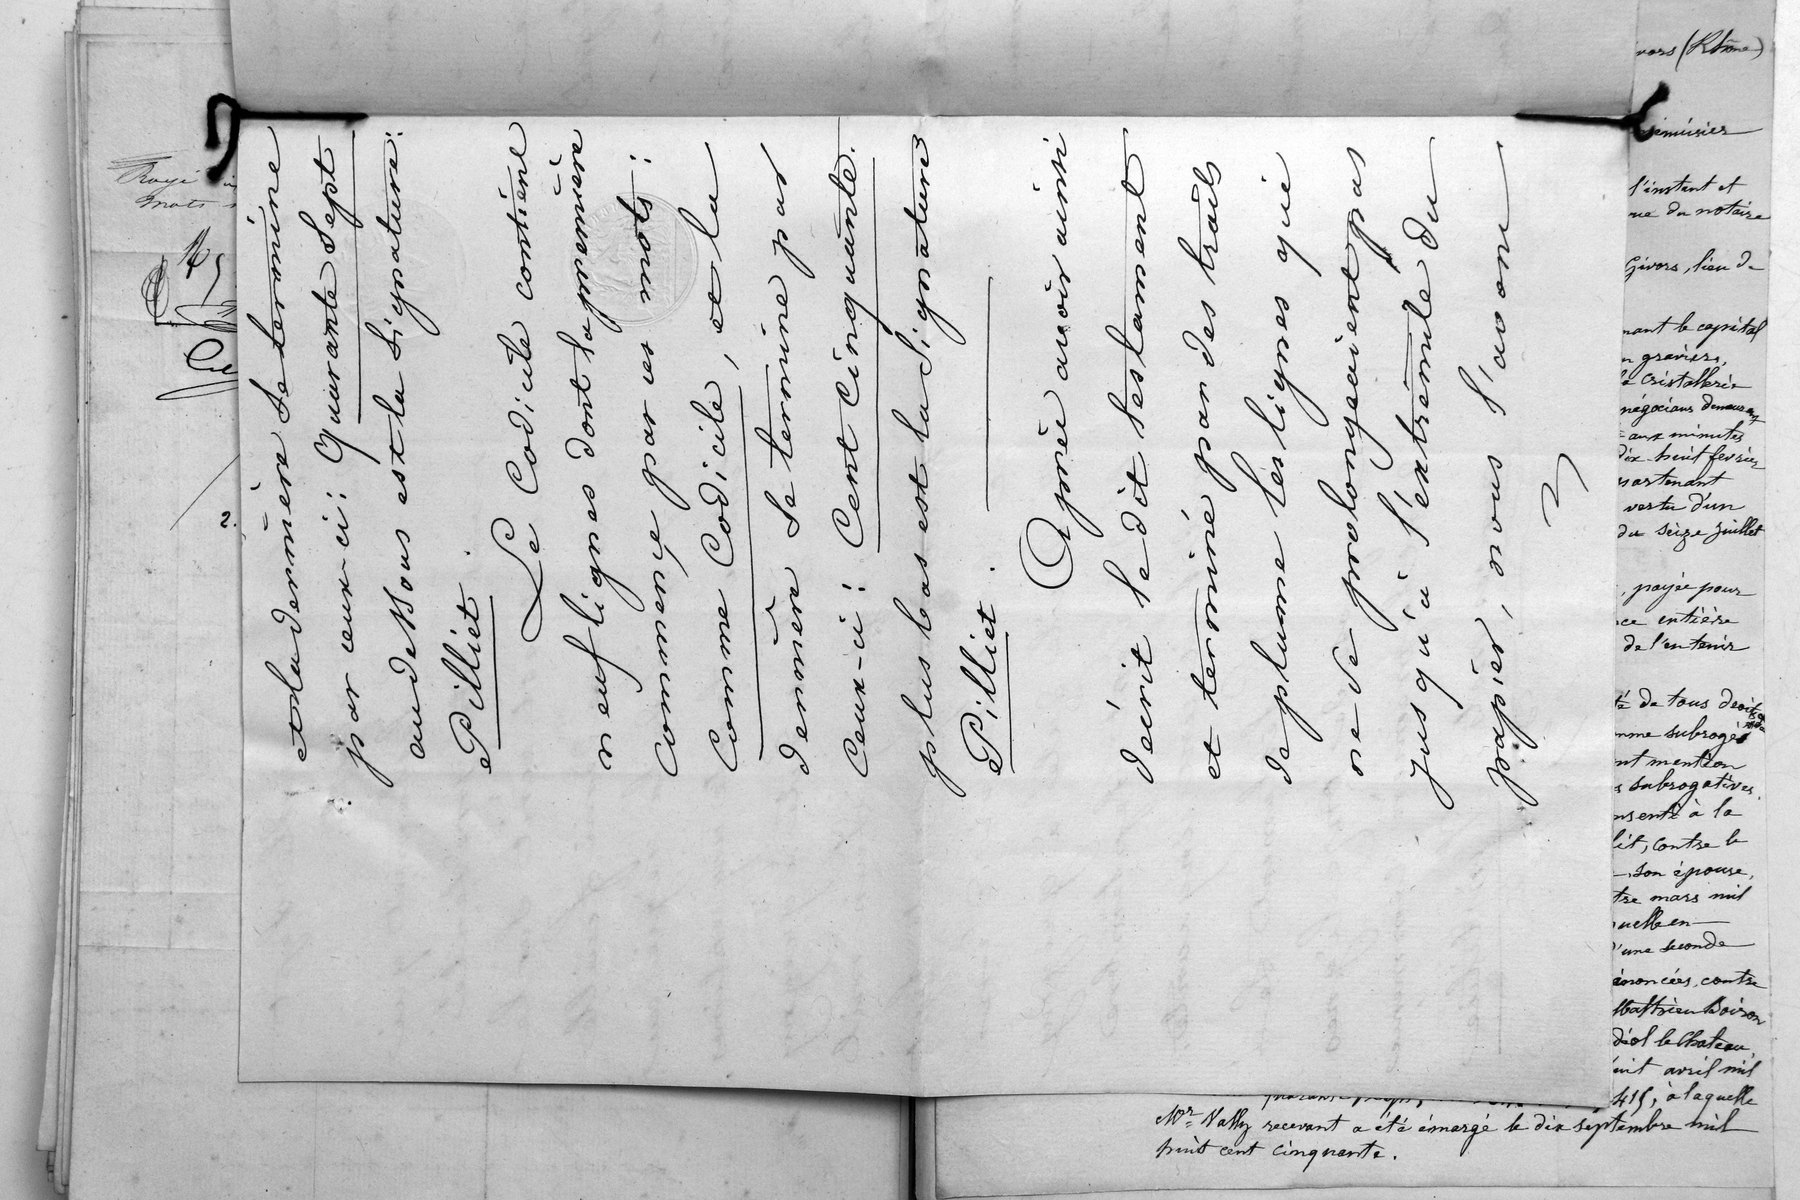 et la dernière se termine
par ceux-ci : quarante sept
au dessous est la signature :
Pilliet.
Le Codicile contient
neuf lignes dont la première
commence par ces mots :
Comme Codicile, et la
dernière se termine par
ceux-ci : Cent cinquante.
plus bas est la signature
Pilliet.
Après avoir ainsi
décrit le dit testament
et terminé par des traits
de plume les lignes qui
ne se prolongeaient pas
jusqu'à l'extrémité du
papier, nous l'avons
Rayé
mots
2.
vors (Rhône)
l'instant et
vue du notaire
Givors, lieu de
nant le capital
graviers,
cristallerie
négocians demeurant
aux minutes
dix huit février
vertu d'un
du seize juillet
payée pour
ce entière
de l'entenir
té de tous droits
mme subrogé
nt mention
s subrogatives
nsenti à la
lit, contre le
son épouse,
tre mars mil
quelle en
d'une seconde
énoncées, contre
Matthieu Boiron
diol le Chateau,
avril mil
415, à laquelle
Mor Nally recevant a été émargé le dix septembre mil
huit cent cinquante.